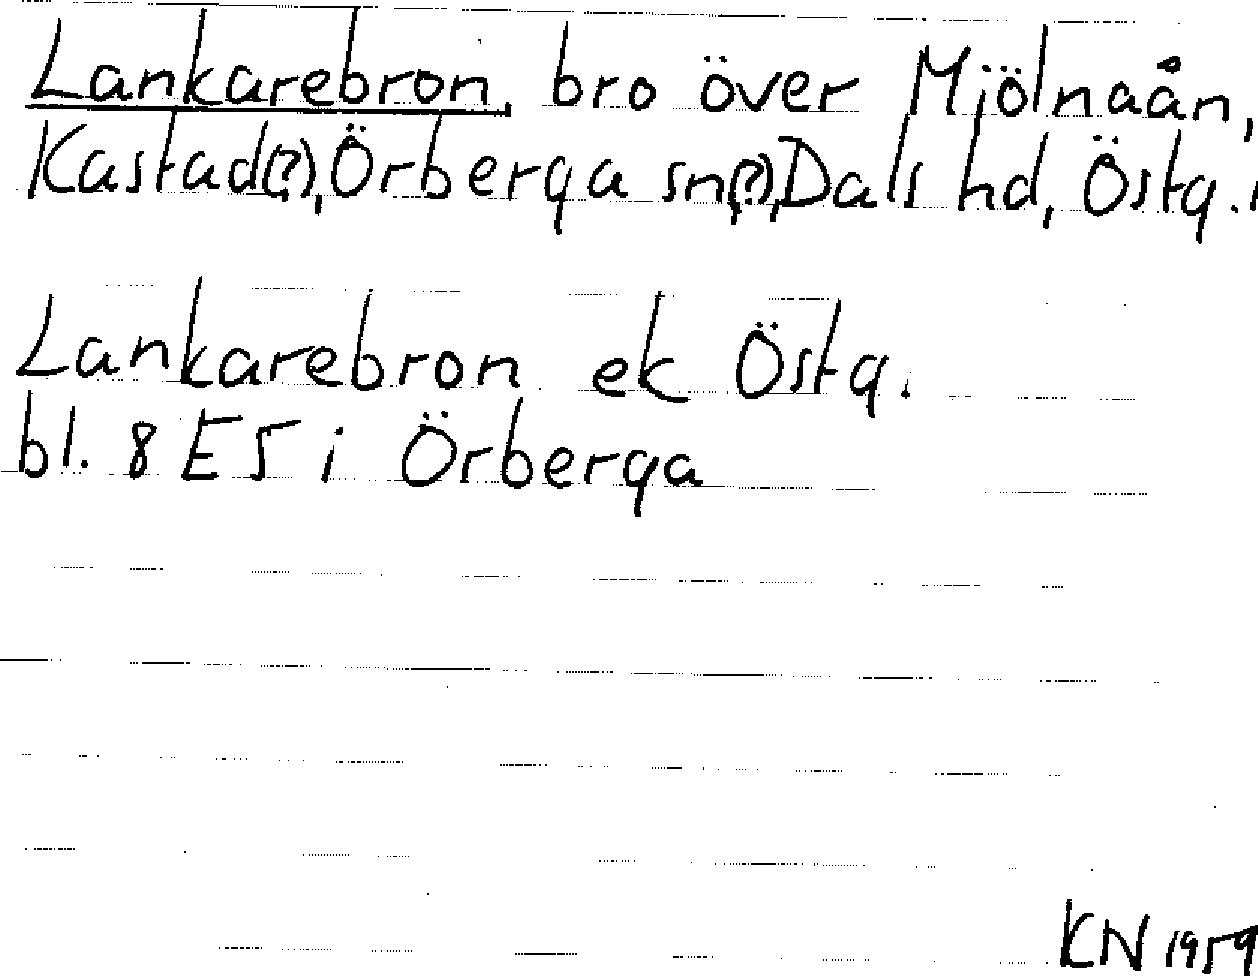 Lankarebron, bro över Mjölnaån,
Kastad(?), Örberga sn(?), Dals hd, Östg.
Lankarebron ek Östg.
bl. 8 E5 i Örberga
KN 1959